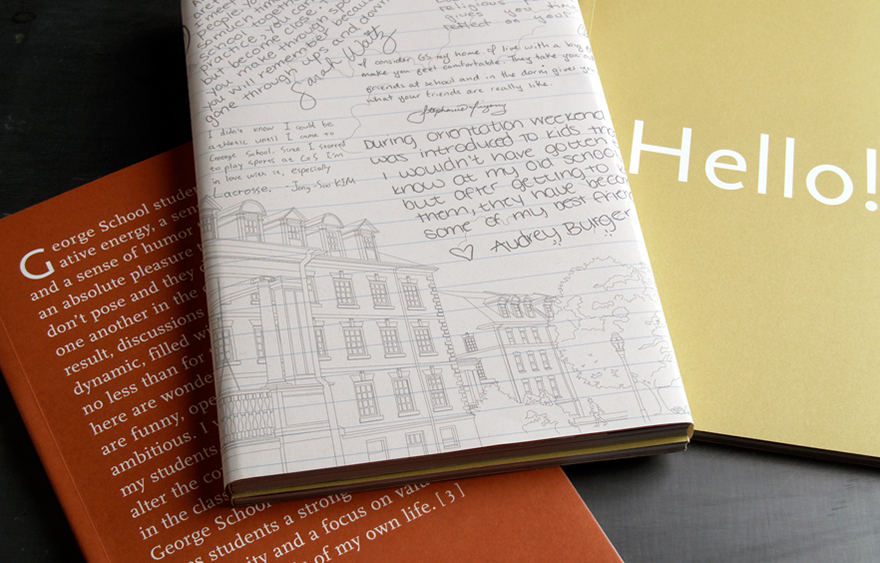 people. You
so much time
school together
practice, you can't
but become close
you make through sports
you will remember because
gone through ups and downs
Sarah Waltz
religious
gives you time
reflect on your
I consider GS my home. I live with a
make you feel comfortable. They take you
friends at school and in the dorm gives you
what your friends are really like.
I didn't know I could be
athletic until I came to
George School. Since I started
to play sports at GS I'm
in love with it, especially
Lacrosse. - Jong-Soo KIM
During orientation weekend
was introduced to kids that
I wouldn't have gotten
know at my old school
but after getting to
them, they have become
some of my best friends
♡ Audrey Burger
Hello!
George School stude
ative energy, a sen
and a sense of humor
an absolute pleasure t
don't pose and they d
one another in the c
result, discussions
dynamic, filled wi
no less than for
here are wonde
are funny, ope
ambitious. I v
my students
alter the co
in the class
George School
es students a strong
ity and a focus on valu
of my own life. [3]